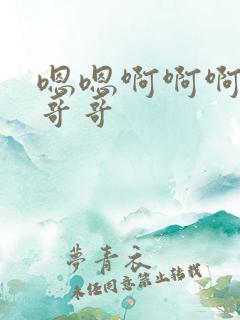 嗯嗯啊啊啊
哥哥
夢青衣
未经同意禁止转载